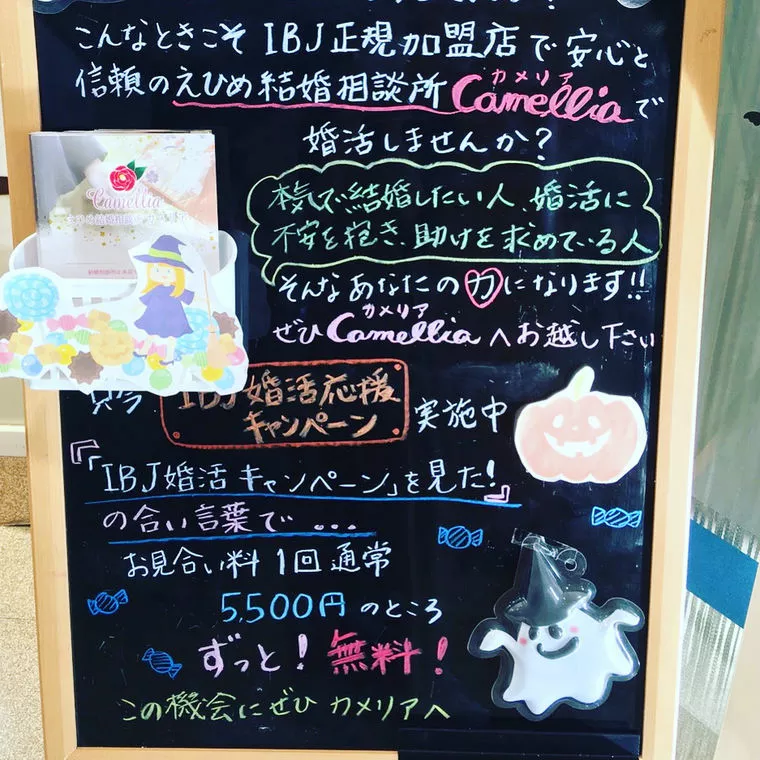 こんなときこそ IBJ正規加盟店で安心と
カメリア
信頼のえひめ結婚相談所 Camelliaで
婚活しませんか?
Camellia
えひめ結婚相談所 カメリア
本気で結婚したい人、婚活に
不安を抱き、助けを求めている人
そんなあなたの力になります!!
カメリア
ぜひ Camellia へお越し下さい
只今 IBJ 婚活応援
キャンペーン 実施中
『「IBJ婚活キャンペーン」を見た!』
の合い言葉で...
お見合い料 1回 通常
5,500円 のところ
ずっと! 無料!
この機会にぜひ カメリアへ